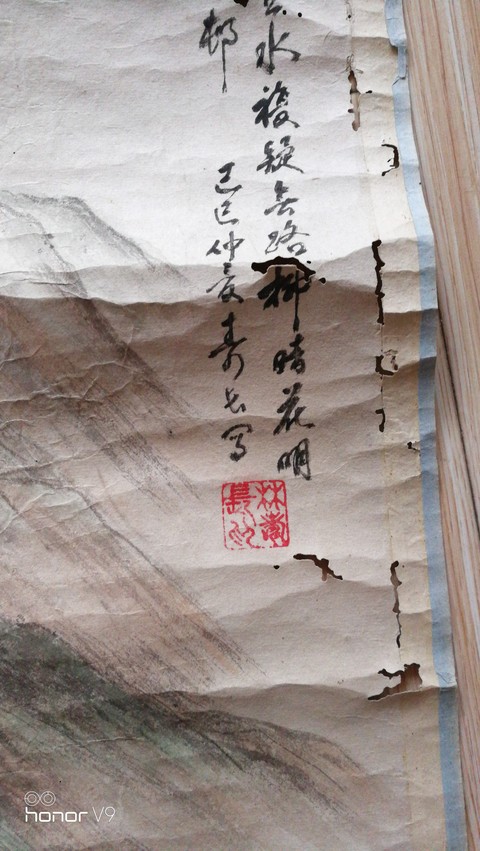 水複疑無路柳暗花明
邨
己巳仲夏寿长写
林壽長印
HONOR V9